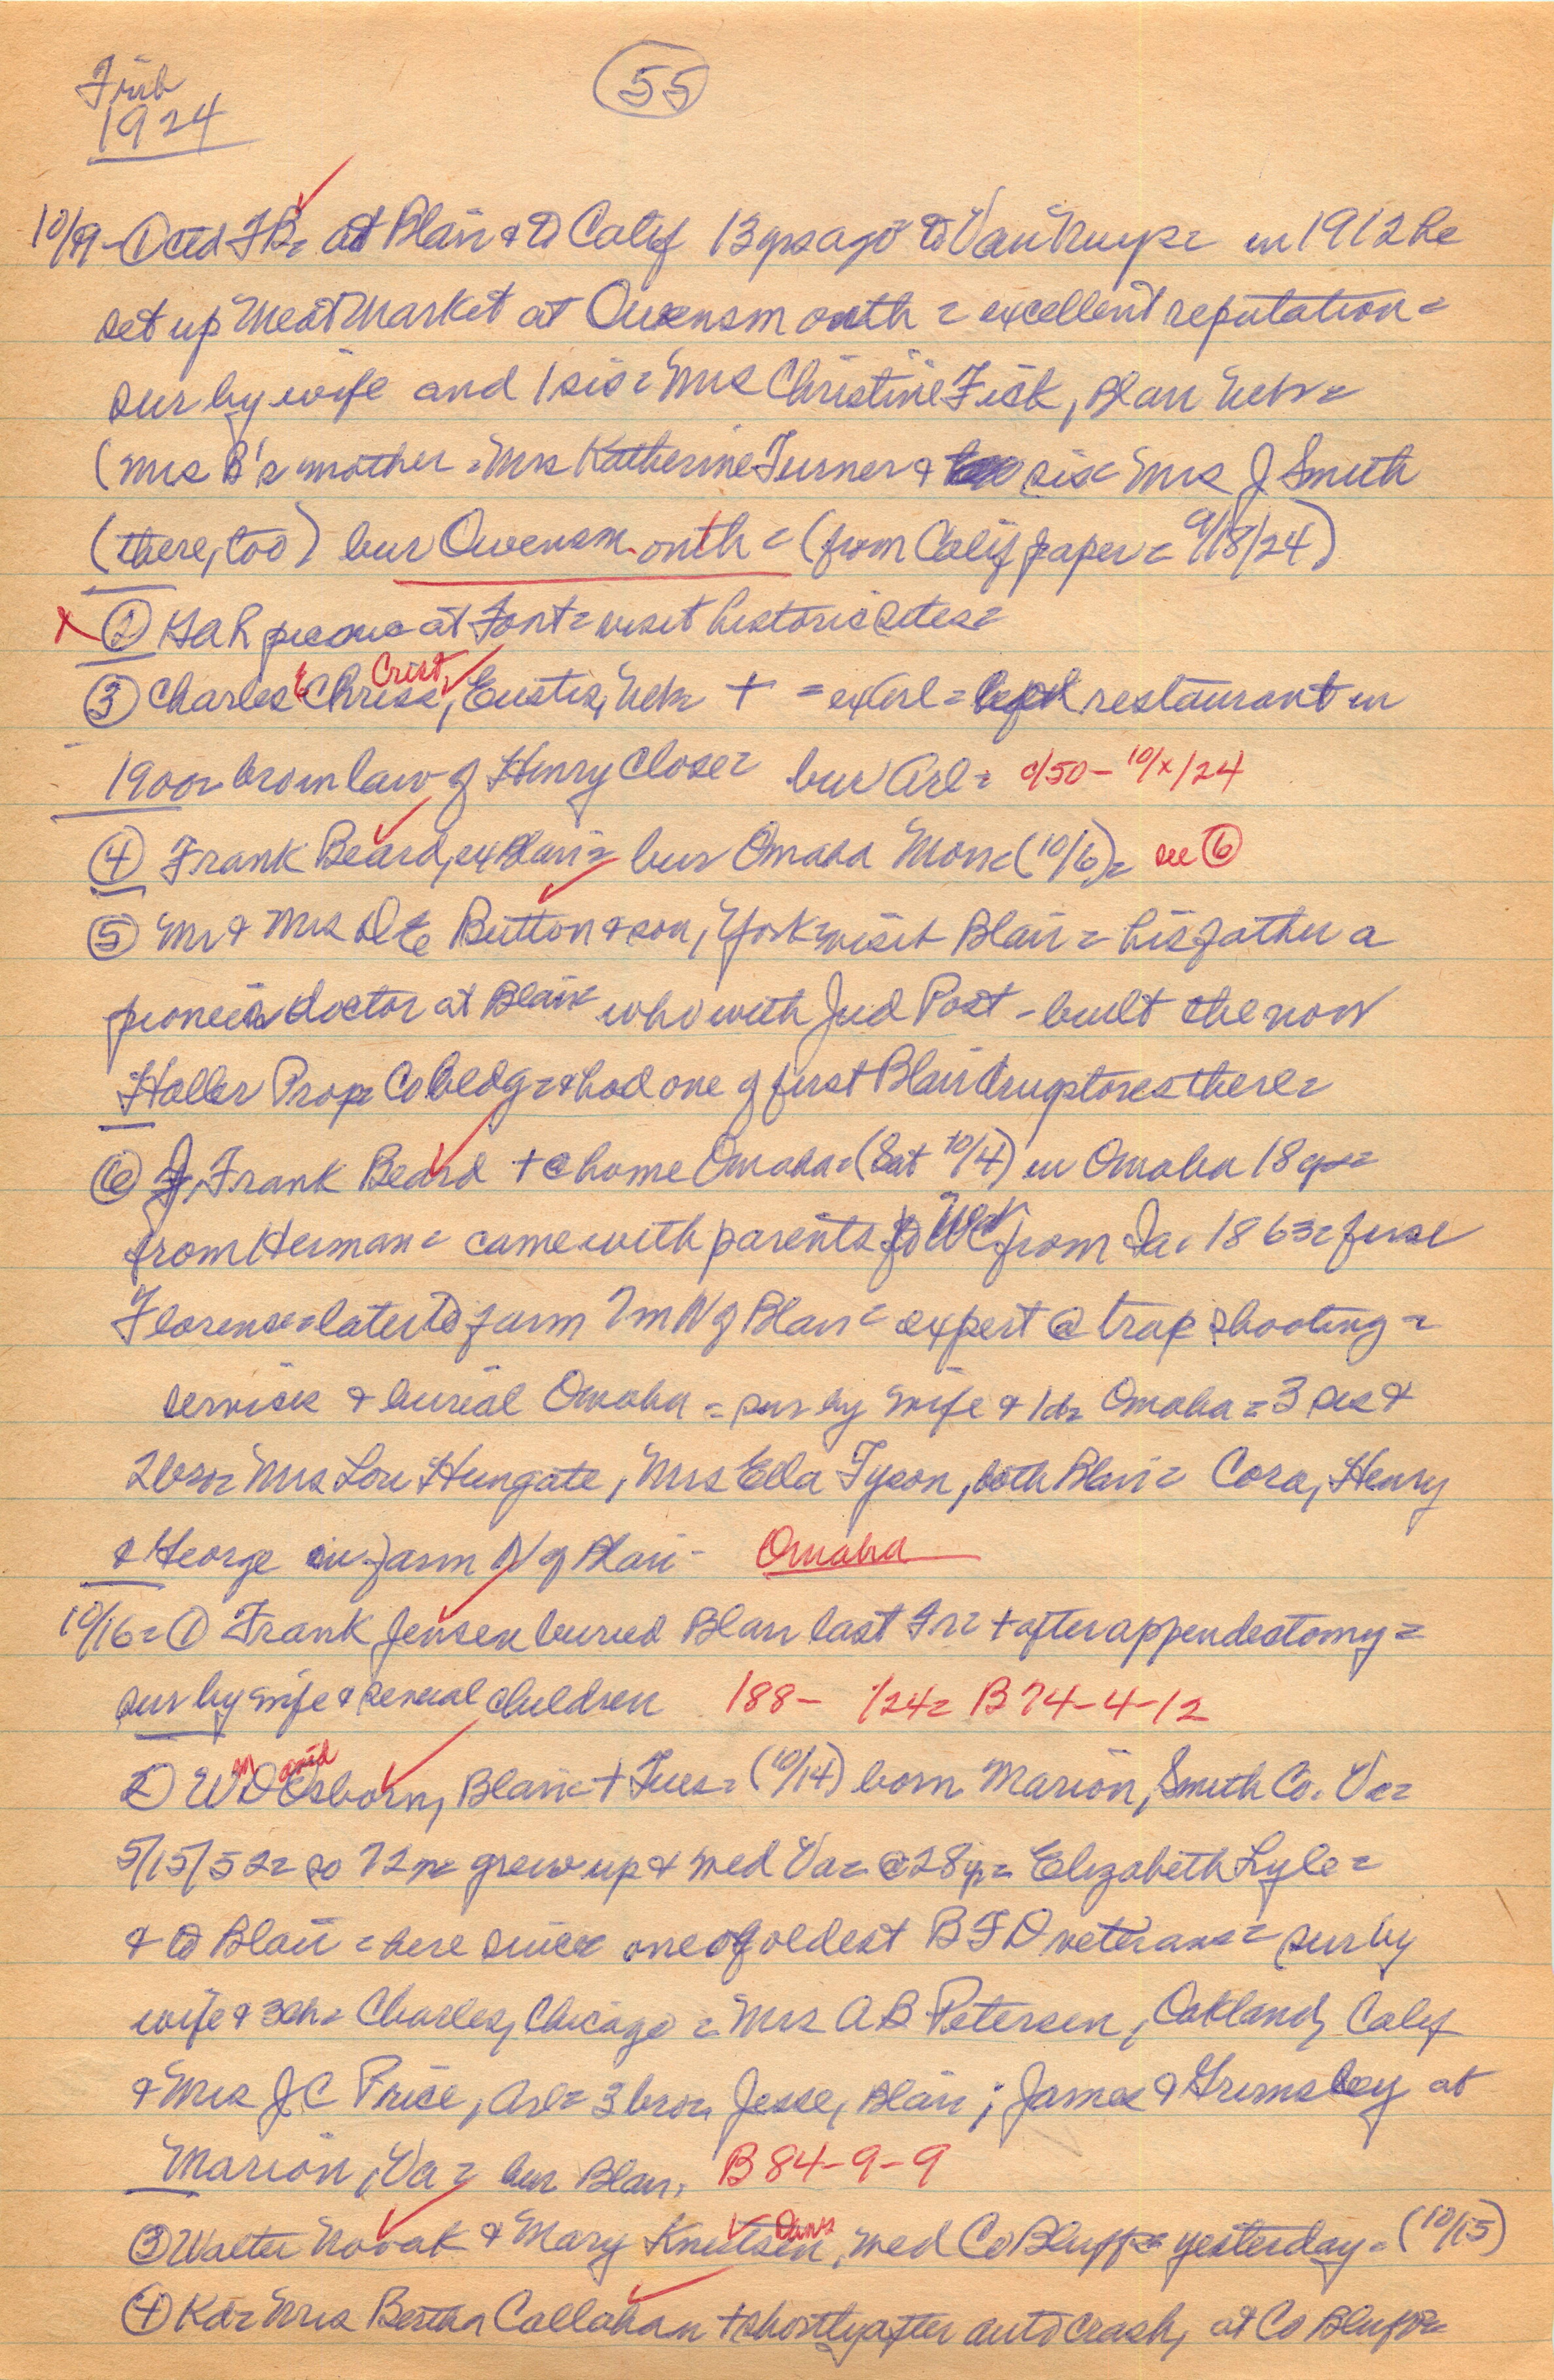 Trib
1924
55
10/9 - ① ctd FB = at Blair & to Calif 13 yrs ago to Van Nuys = in 1912 he
set up Meat Market at Owensmouth = excellent reputation =
sur by wife and 1 sis = Mrs Christine Fisk, Blair Nebr =
(Mrs B's mother = Mrs Katherine Turner & sis = Mrs J Smith
(there, too) bur Owensmouth = (from Calif paper = 9/18/24)
X ② GAR picnic at Font = visit historic sites =
③ Charles E Chriss, Crist, Eustis, Nebr + = ex Arl = restaurant in
1900 = bro in law of Henry Close = bur Arl = c/50 - 10/x/24
④ Frank Beard, ex Blair = bur Omaha Mon = (10/6) = see ⑥
⑤ Mr & Mrs D E Button & son, York = visit Blair = his father a
pioneer doctor at Blair who with Jud Post - built the now
Haller Prop Co bldg = & had one of first Blair drugstores there =
⑥ J. Frank Beard + @ home Omaha = (Sat 10/4) in Omaha 18 yrs =
from Herman = came with parents to WC from Ia. 1863 = first
Florence = later to farm 7 m N of Blair = expert @ trap shooting =
services & burial Omaha = sur by wife & 1 d = Omaha = 3 sis &
2 bro = Mrs Lou Hungate, Mrs Ella Tyson, both Blair = Cora, Henry
& George on farm N of Blair - Omaha
10/16 = ① Frank Jensen buried Blair last Fri = + after appendectomy =
sur by wife & several children 188- /24 = B 74-4-12
② Wm David Osborn, Blair + Tues = (10/14) born Marion, Smith Co. Va =
5/15/52 = so 72 = grew up & med Va = @ 28 y = Elizabeth Lyle =
& to Blair = here since one of oldest BFD veterans = sur by
wife & 3 ch = Charles, Chicago = Mrs A B Petersen, Oakland, Calif
& Mrs J C Price, Arl = 3 bro = Jesse, Blair ; James & Grimsley at
Marion, Va = bur Blair, B 84-9-9
③ Walter Novak & Mary Knutsen, Dans med Co Bluffs = yesterday = (10/15)
④ Kd = Mrs Bertha Callahan + shortly after auto crash, at Co Bluffs =